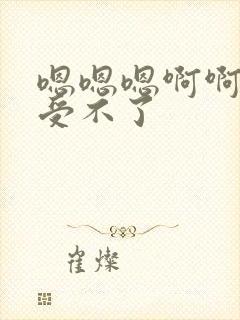 嗯嗯嗯啊啊
受不了
崔燦